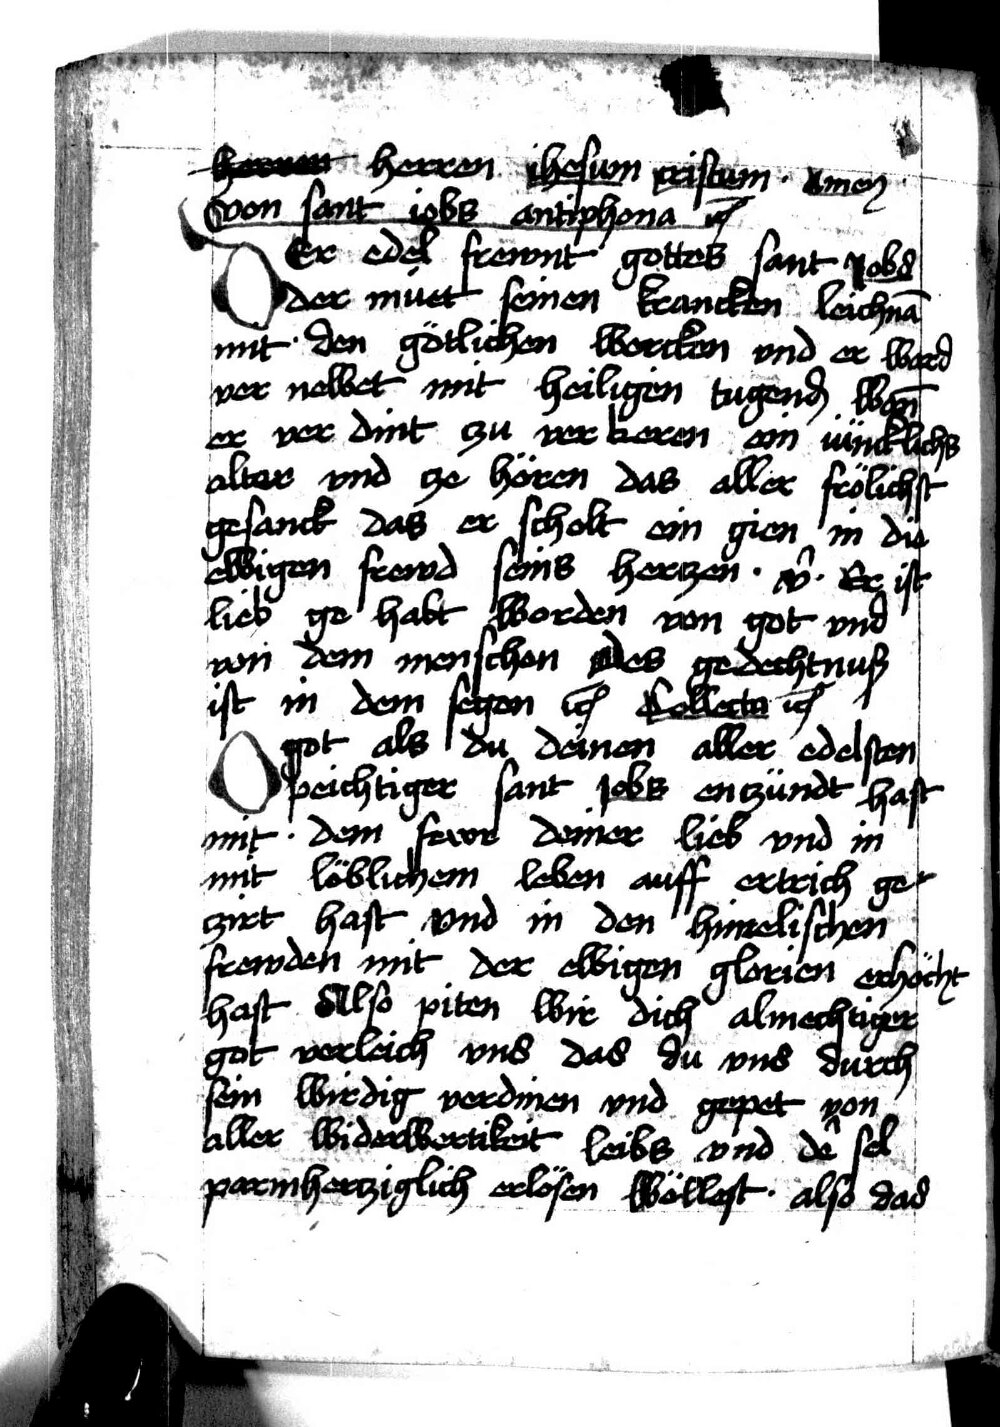 herren herren ihesum cristum. Amen
Von sant iobs antiphona ich
Der edel frewnt gottes sant Jobs
der müet seinen krancken leichnā
mit den götlichen wercken vnd er ward
ver newet mit heiligen tugend wañ
er ver dint zu ver keren ein iüncklichs
alter vnd ze hören das aller frölichst
gesanck das er scholt ein gien in die
ewigen frewd seins hertzen. v̂. Er ist
lieb ge habt worden von got vnd
von dem menschen Des gedechtnuß
ist in dem segen ich Collecta ich
O got als du deinen aller edelsten
peichtiger sant Jobs enzündt hast
mit dem fewr deiner lieb vnd in
mit löblichem leben auff ertrich ge-
zirt hast vnd in den himelischen
frewden mit der ewigen glorien erhöcht
hast Also piten wir dich almechtiger
got verleich vns das du vns durch
sein wirdig verdinen vnd gepet von
aller widerwertikeit leibs vnd dē sel
parmhertziglich erlösen wöllest. also das